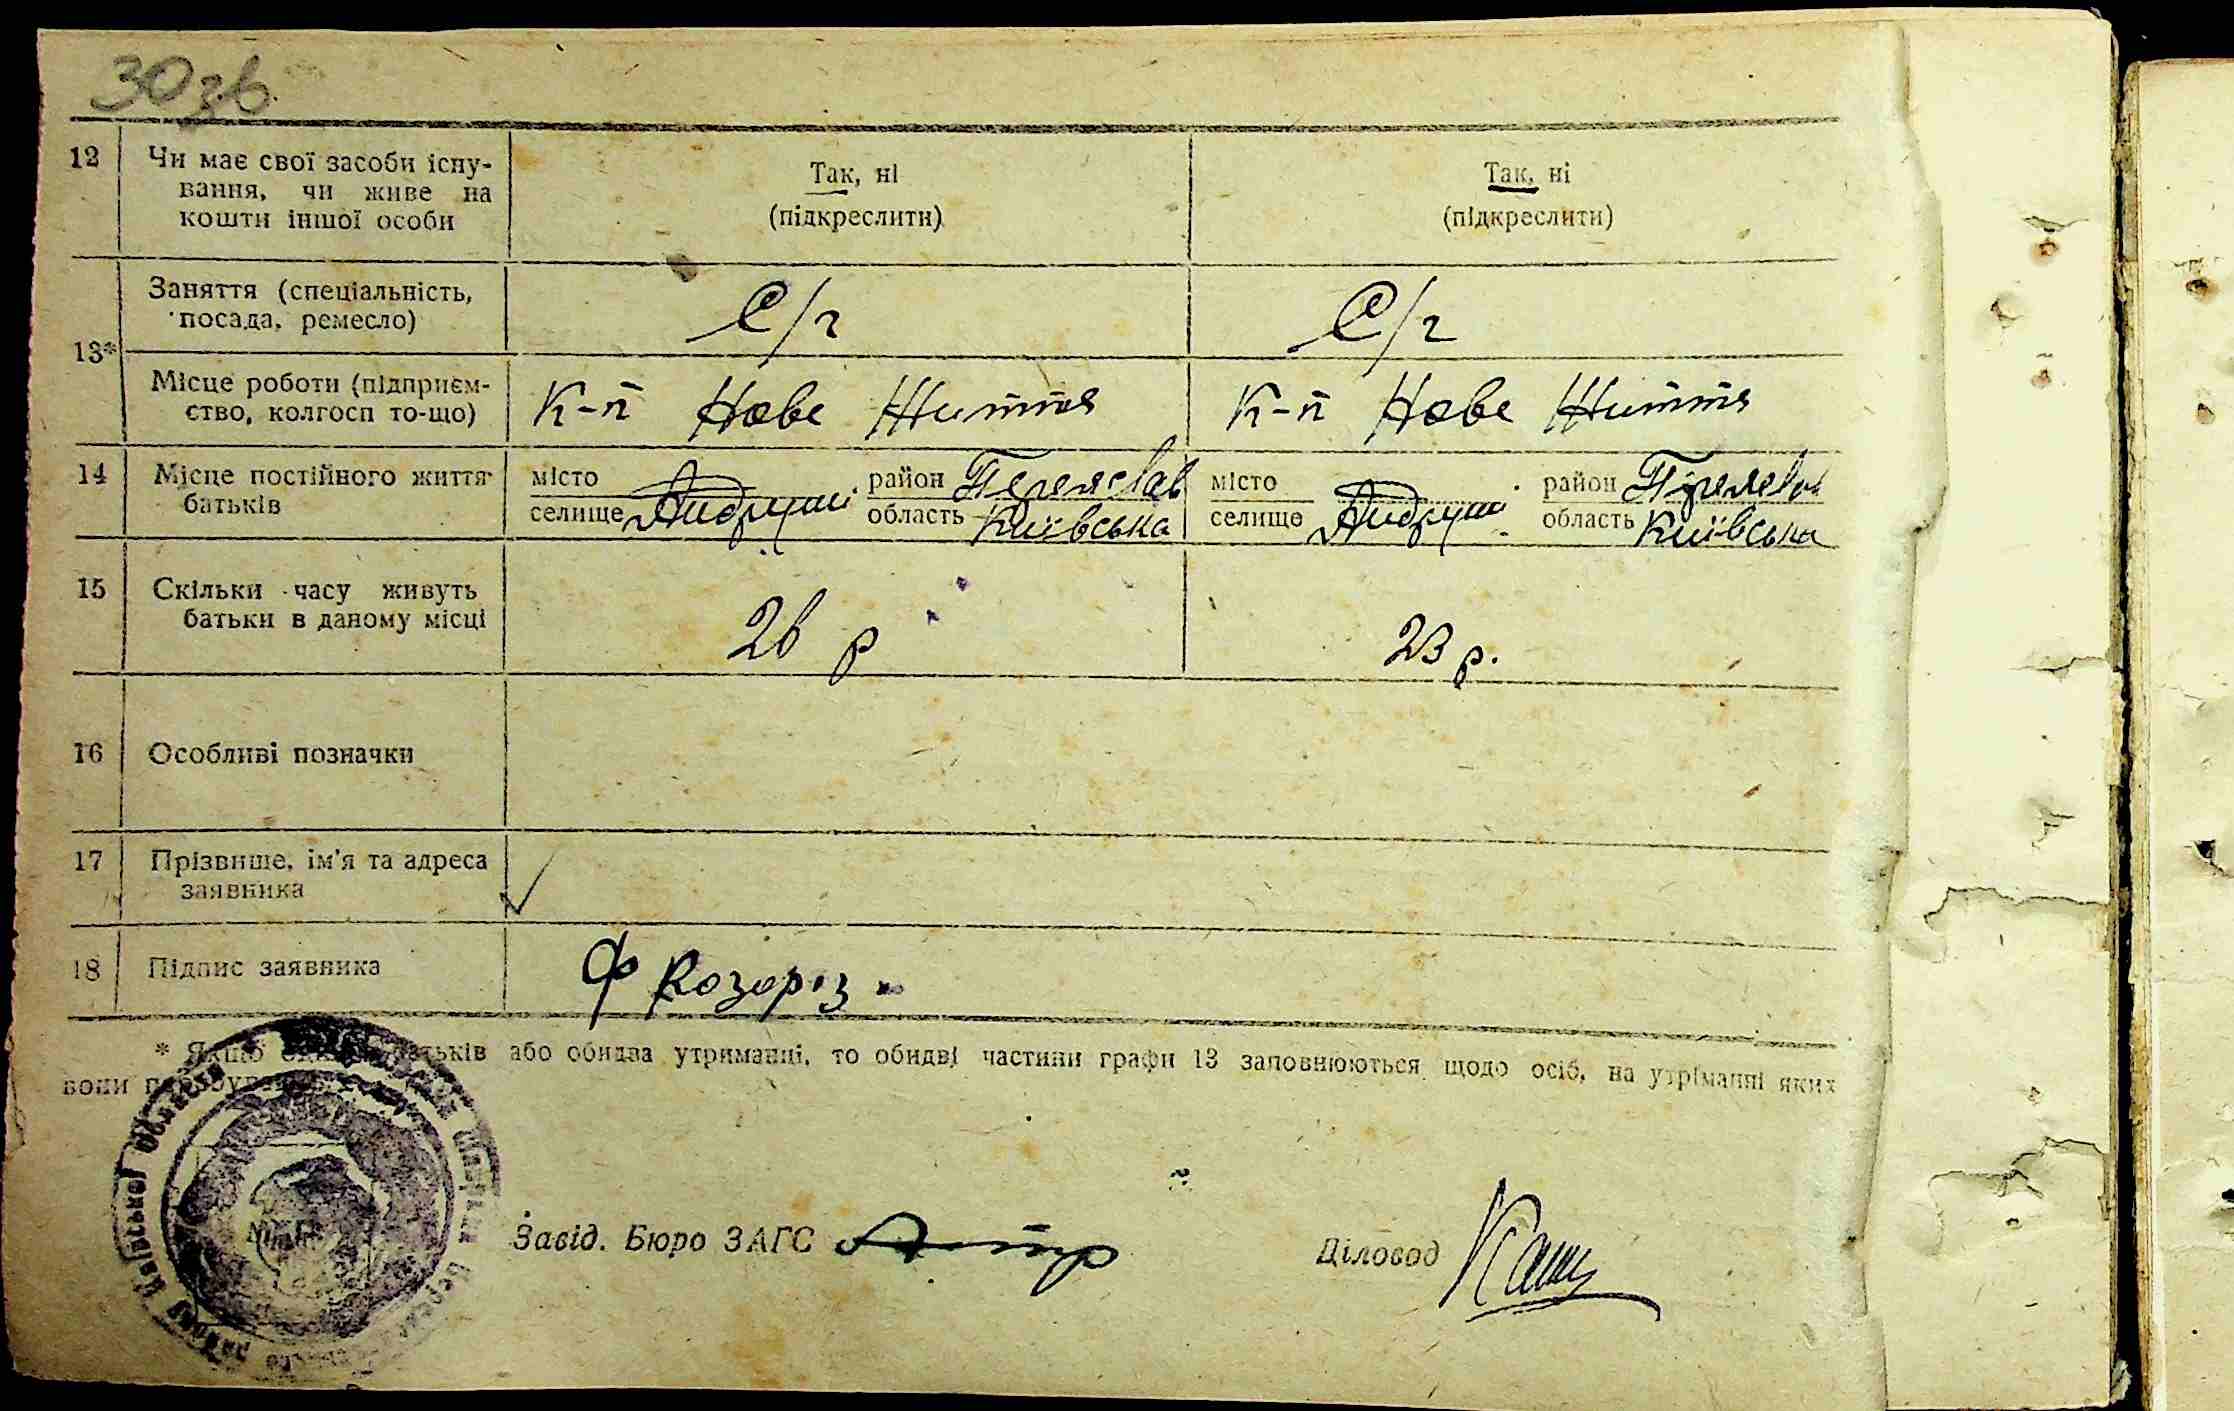 30 зв.
12 Чи має свої засоби існу-
вання, чи живе на
кошти іншої особи
Так, ні
(підкреслити)
Так, ні
(підкреслити)
13*
Заняття (спеціальність,
посада, ремесло)
С/г
С/г
Місце роботи (підприєм-
ство, колгосп то-що)
К-п Нове Життя
К-п Нове Життя
14 Місце постійного життя
батьків
місто
селище Андруші
район Переяслав
область Київська
місто
селище Андруші
район Переяслав
область Київська
15 Скільки часу живуть
батьки в даному місці
26 р
23 р.
16 Особливі позначки
17 Прізвище, ім'я та адреса
заявника
18 Підпис заявника
Ф Козоріз
* Якщо батьків або обидва утриманні, то обидві частини графи 13 заповнюються щодо осіб, на утріманні яких
вони
Київської Області
Завід. Бюро ЗАГС
Діловод